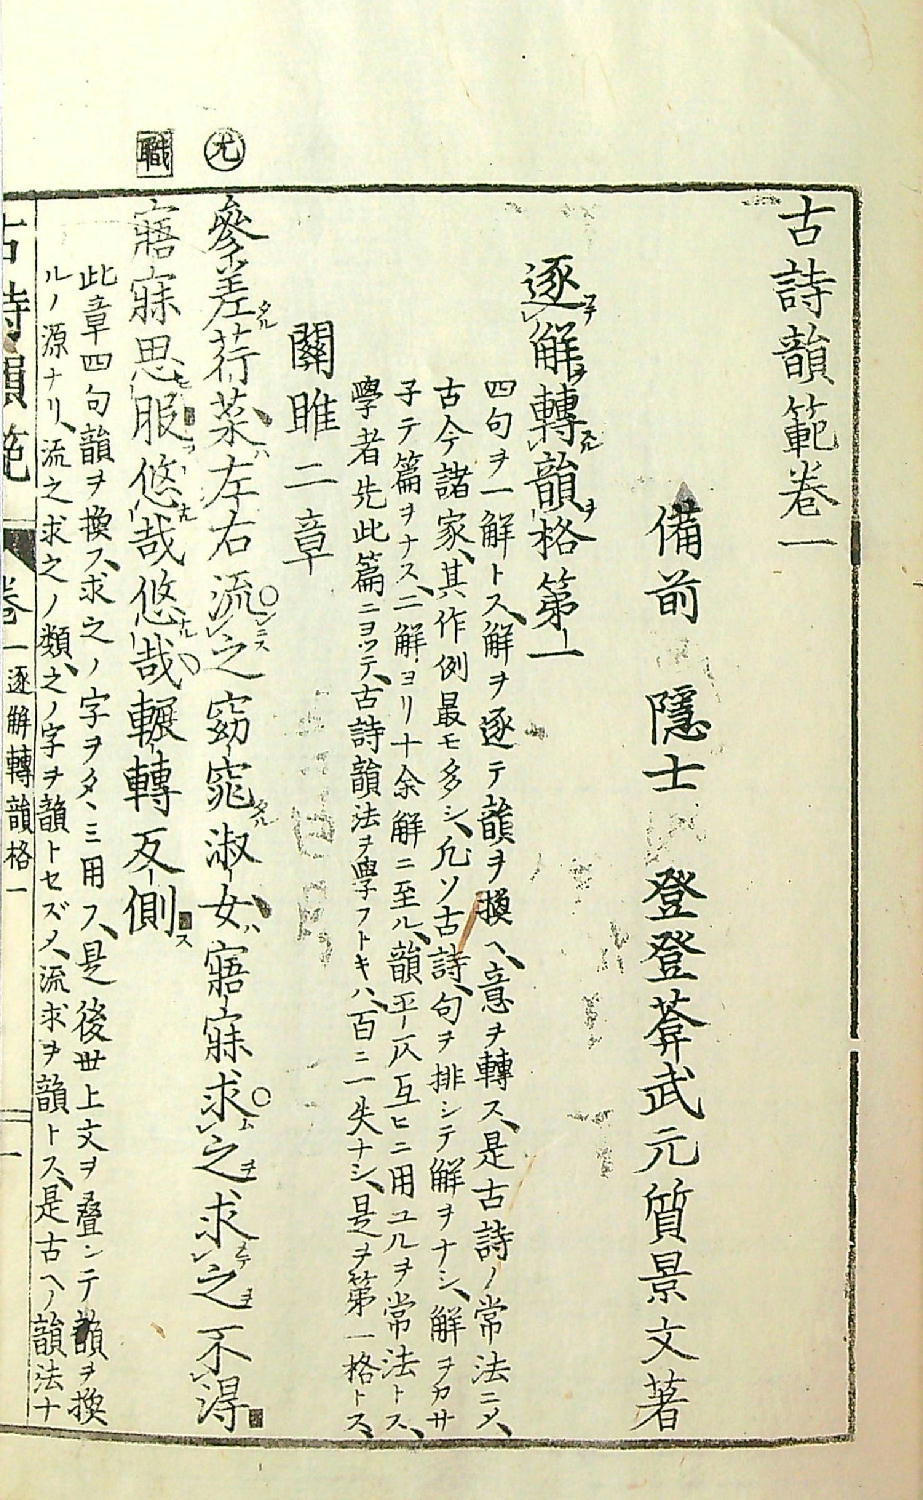 古詩韻範卷一
備前 隱士 登登葊武元質景文著
逐解轉韻格第一
四句ヲ一解トス、解ヲ逐テ韻ヲ換ヘ、意ヲ轉ス、是古詩ノ常法ニメ、
古今諸家、其作例最モ多シ、凡ソ古詩、句ヲ排シテ解ヲナシ、解ヲカサ
子テ篇ヲナス、二解ヨリ十余解ニ至ル、韻平仄互ヒニ用ユルヲ常法トス、
學者先此篇ニヨツテ、古詩韻法ヲ學フトキハ、百ニ一失ナシ、是ヲ第一格トス、
關雎二章
尤
參差荇菜左右流之窈窕淑女寤寐求之求之不得
職
寤寐思服悠哉悠哉輾轉反側
此章四句韻ヲ換ス、求之ノ字ヲタヽミ用フ、是後世上文ヲ疊ンテ韻ヲ換
ルノ源ナリ、流之求之ノ類、之ノ字ヲ韻トセズメ、流求ヲ韻トス、是古ヘノ韻法ナ
古詩韻範 卷一 逐解轉韻格一 一